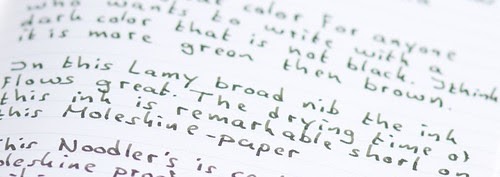 who wants color for anyone
dark color to write with a
it is that is not black. I think
more green then brown.
In this Lamy broad nib the ink
flows great. The drying time of
this ink is remarkable short on
this Moleskine-paper
This Noodler's is